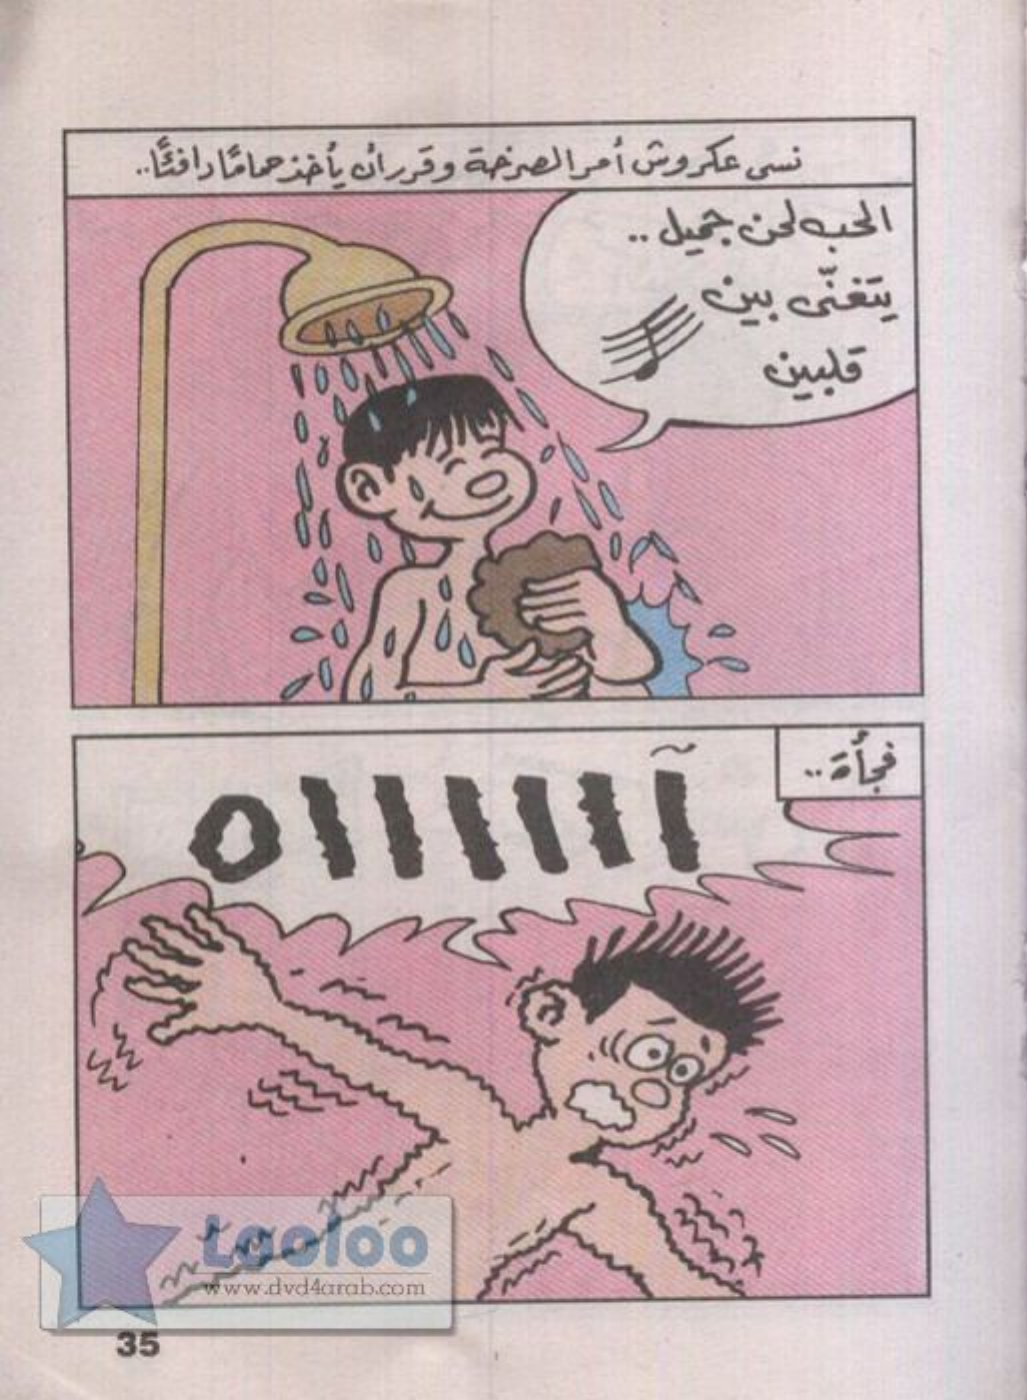 نسى عكروش أمر الصرخة وقرر أن يأخذ حمامًا دافئًا..
الحب لحن جميل ..
يتغنّى بين
قلبين
فجأة ..
آااااااه
Laoloo
www.dvd4arab.com
35